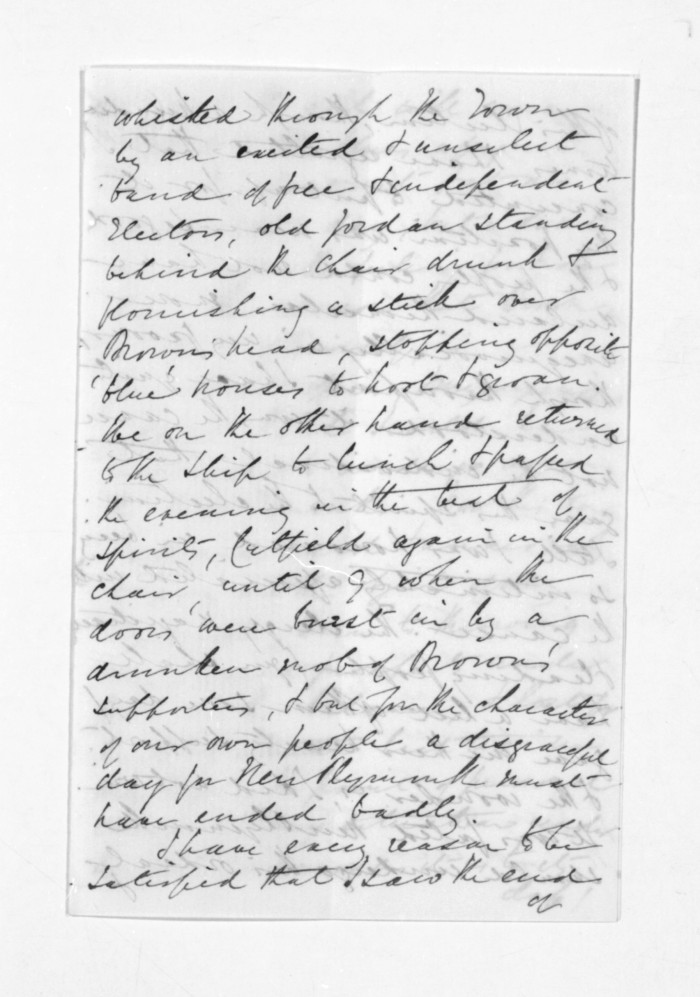 whisted through the Town
by an excited & unselect
band of free & independent
Electors, old Jordan standing
behind the chair drunk &
flourishing a stick over
Brown's head, stopping opposite
'blue' houses to hoot & groan.
We on the other hand returned
to the ship to lunch & passed
the evening in the best of
spirits, Cutfield again in the
chair, until 9 when the
doors were burst in by a
drunken mob of Brown's
supporters, & but for the character
of our own people a disgraceful
day for New Plymouth must
have ended badly.
I have every reason to be
satisfied that I saw the end
of